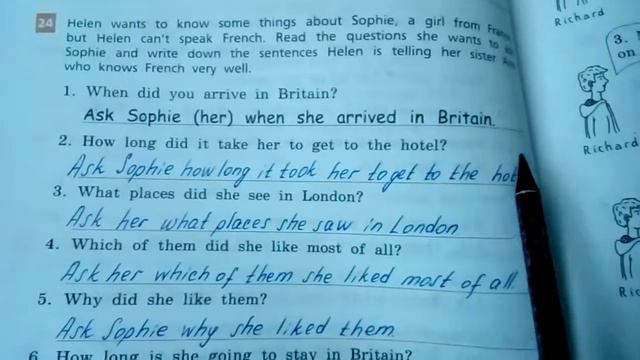 24 Helen wants to know some things about Sophie, a girl from
but Helen can't speak French. Read the questions she wants to
Sophie and write down the sentences Helen is telling her sister
who knows French very well.
1. When did you arrive in Britain?
Ask Sophie (her) when she arrived in Britain.
2. How long did it take her to get to the hotel?
Ask Sophie how long it took her to get to the hot
3. What places did she see in London?
Ask her what places she saw in London
4. Which of them did she like most of all?
Ask her which of them she liked most of all.
5. Why did she like them?
Ask Sophie why she liked them
6. How long is she going to stay in Britain?
Richard
3.
on
Richard
Ric